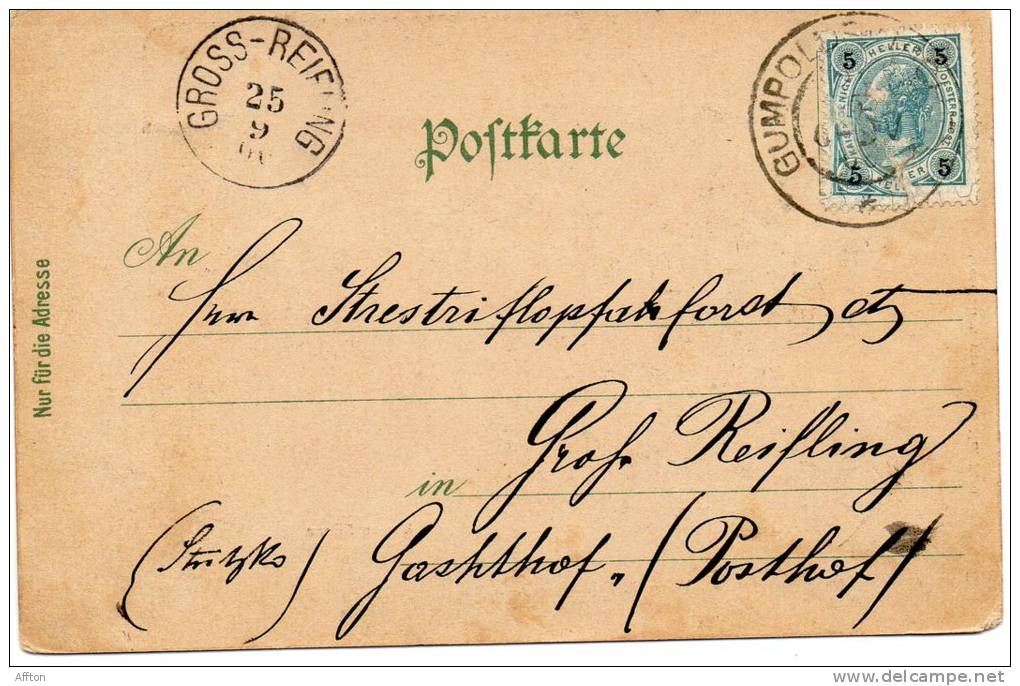 GROSS-REIFLING
25
9
Postkarte
GUMPOL
5 HELLER 5
5 HELLER 5
An
Herrn
Nur für die Adresse
Groß Reifling
in
Gasthof „(Posthof)
www.delcampe.net
Affton